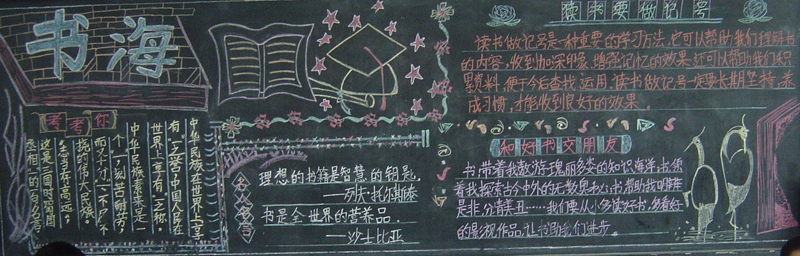 书海
考考你
中华民族在世界上享
有
中国人民在
世界上享有
之称。
中华民族素来是一
个
刻苦耐劳
而又十分
的伟大民族。
生
志存高远。
这是三国时蜀国
丞相
的
名人名言
理想的书籍是智慧的钥匙。
——列夫·托尔斯泰
书是全世界的营养品。
——沙士比亚
读书要做记号
读书做记号是一种重要的学习方法,它可以帮助我们理解书
的内容,收到加深印象,增强记忆的效果,还可以帮助我们积
累资料,便于今后查找运用。读书做记号一定要长期坚持,养
成习惯,才能收到良好的效果。
和好书交朋友
书,带着我遨游瑰丽多姿的知识海洋,书,使
着我探索古今中外的无数奥秘,书,帮助我明辨
是非,分清美丑……我们要从小多读好书,多看好
的影视作品,让书助我们进步。